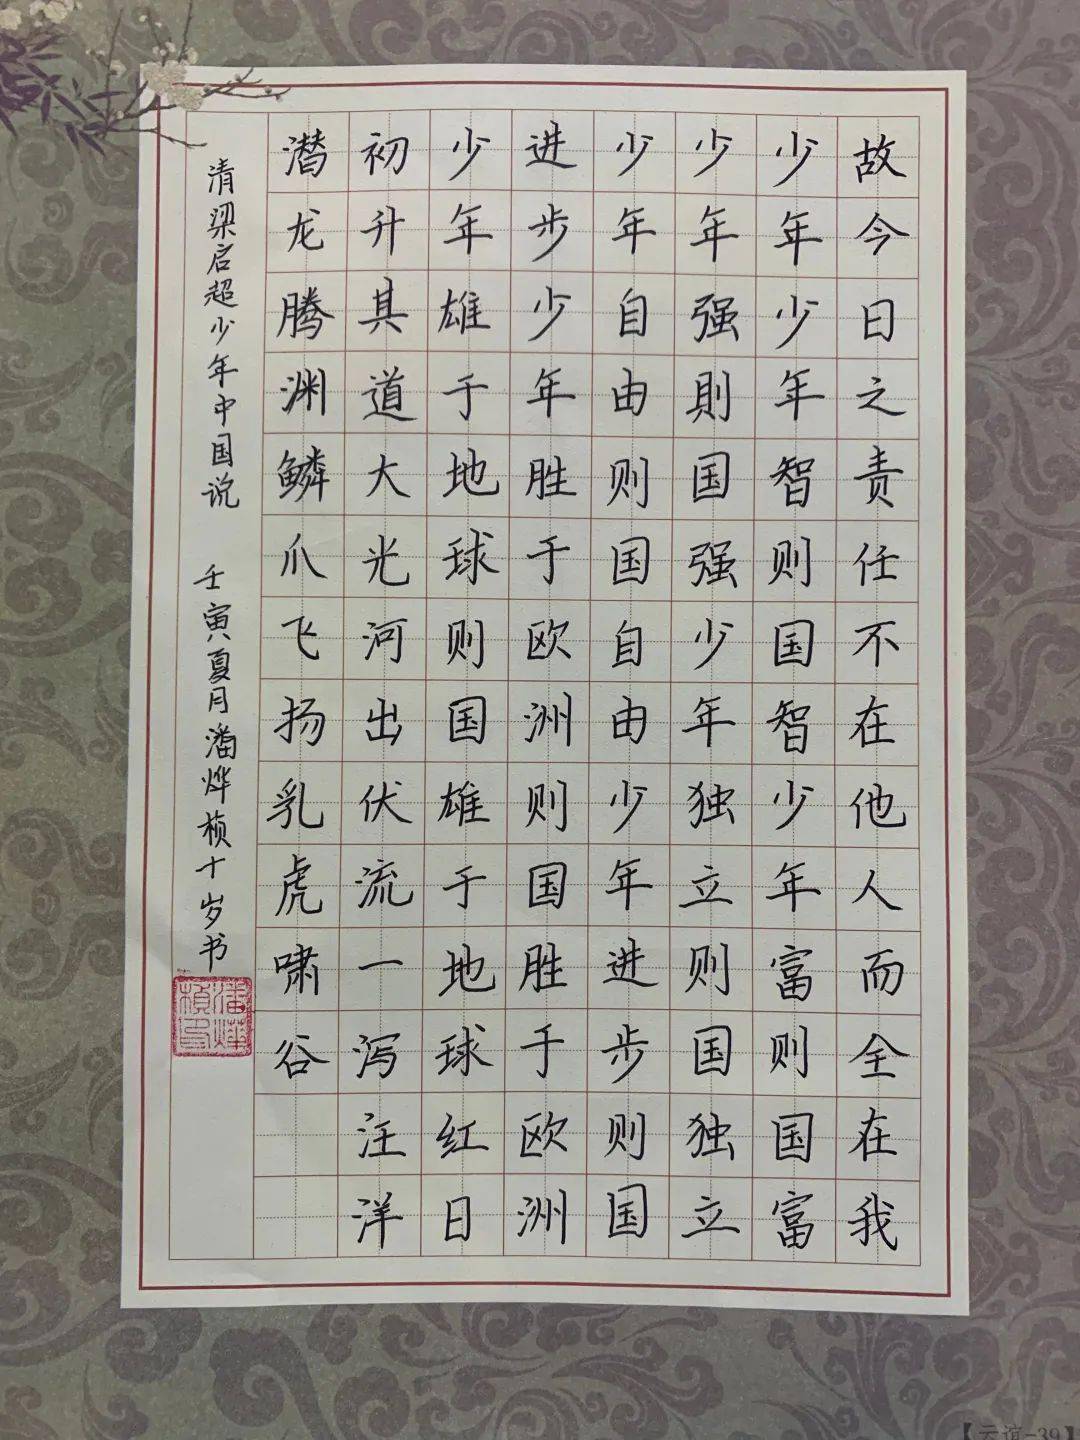 故今日之责任不在他人而全在我
少年少年智则国智少年富则国富
少年强則国强少年独立则国独立
少年自由则国自由少年进步则国
进步少年胜于欧洲则国胜于欧洲
少年雄于地球则国雄于地球红日
初升其道大光河出伏流一泻汪洋
潜龙腾渊鳞爪飞扬乳虎啸谷
清梁启超少年中国说 壬寅夏月潘烨桢十岁书
潘燁楨印
【云谊-39】